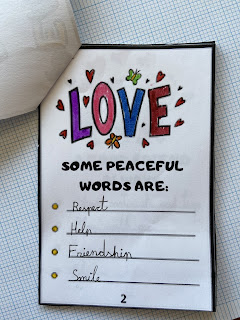 LOVE
SOME PEACEFUL
WORDS ARE:
Respect
Help
Friendship
Smile
2